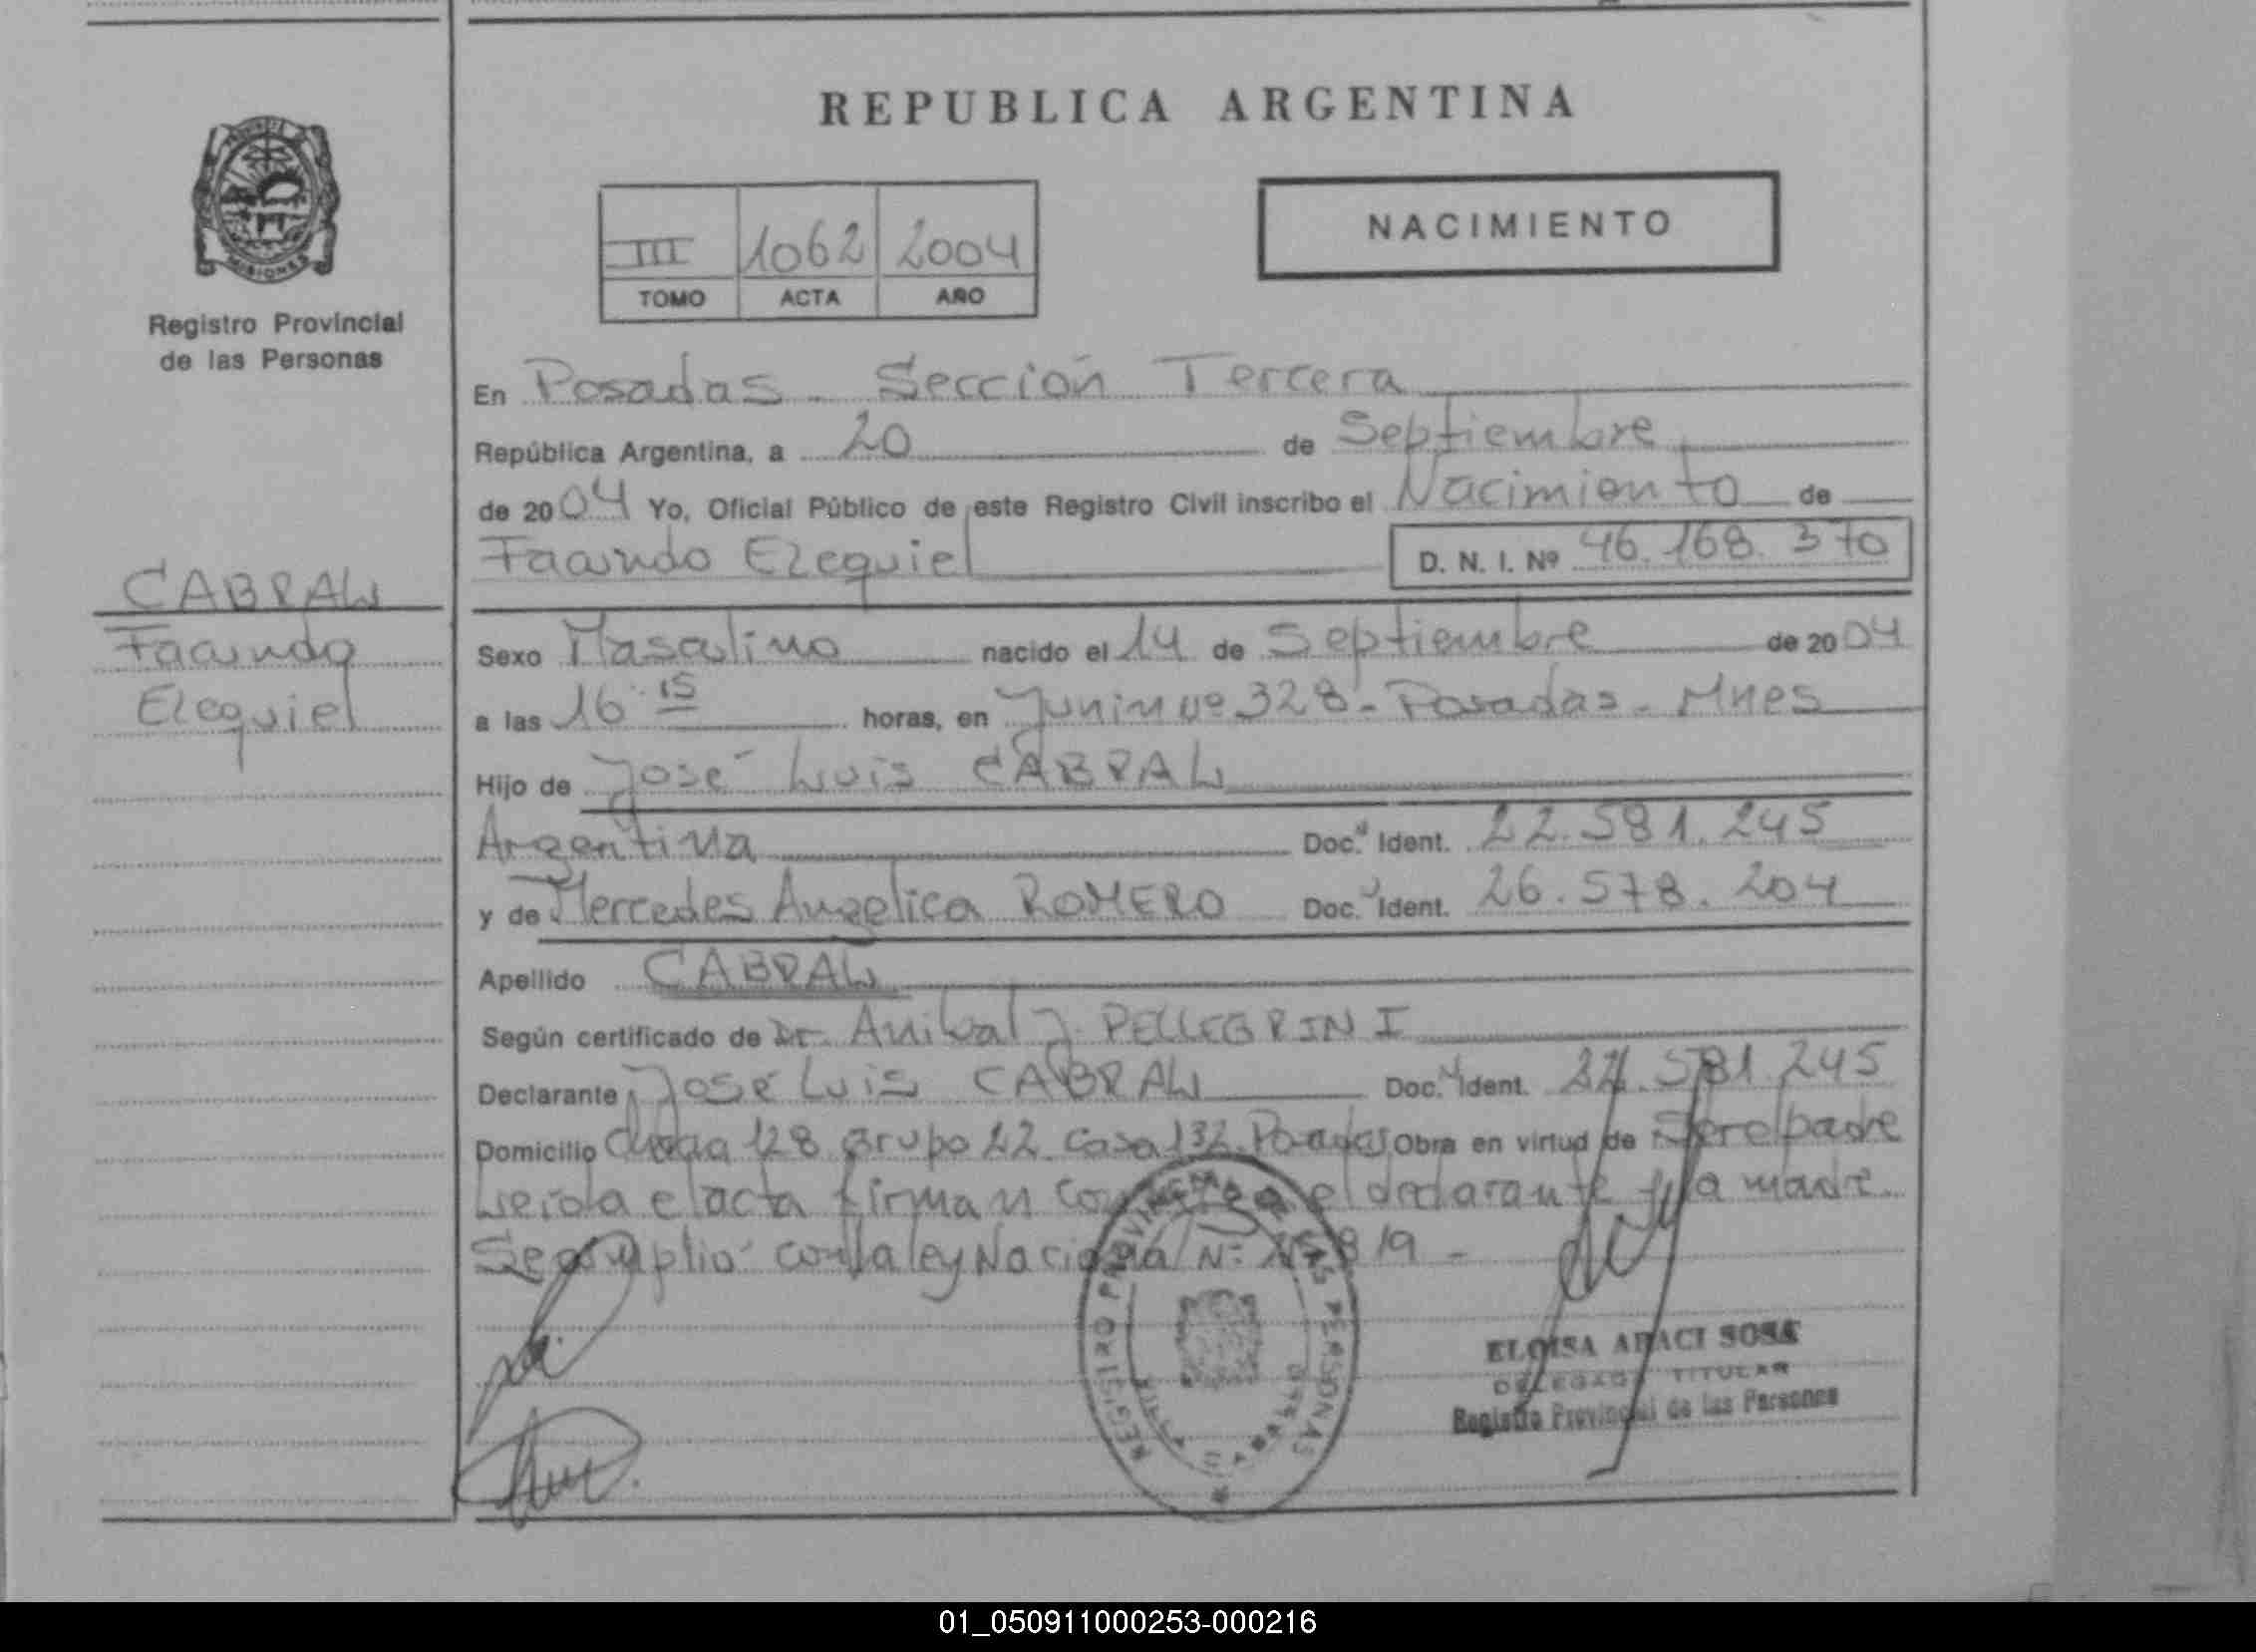 REPUBLICA ARGENTINA
NACIMIENTO
III 1062 2004
TOMO ACTA AÑO
MISIONES
Registro Provincial
de las Personas
CABRAL
Facundo
Ezequiel
En Posadas - Sección Tercera
República Argentina, a 20 de Septiembre
de 2004 Yo, Oficial Público de este Registro Civil inscribo el Nacimiento de
Facundo Ezequiel D. N. I. Nº 46.168.370
Sexo Masculino nacido el 14 de Septiembre de 2004
a las 16 15 horas, en Junin nº 328 - Posadas - Mnes
Hijo de José Luis CABRAL
Argentina Doc. Ident. 22.581.245
y de Mercedes Angelica ROMERO Doc. Ident. 26.578.204
Apellido CABRAL
Según certificado de Dr. Anibal J. PELLEGRINI
Declarante José Luis CABRAL Doc. Ident. 22.581.245
Domicilio 128 Grupo 22 Casa 132 Posadas Obra en virtud de Ser el padre
Leida el acta firman el declarante y la madre
Se cumplio con la ley Nacional Nº
REGISTRO PROVINCIAL DE LAS PERSONAS
ELOISA ARACI SOSA
DELEGADA TITULAR
Registro Provincial de las Personas
01_050911000253-000216